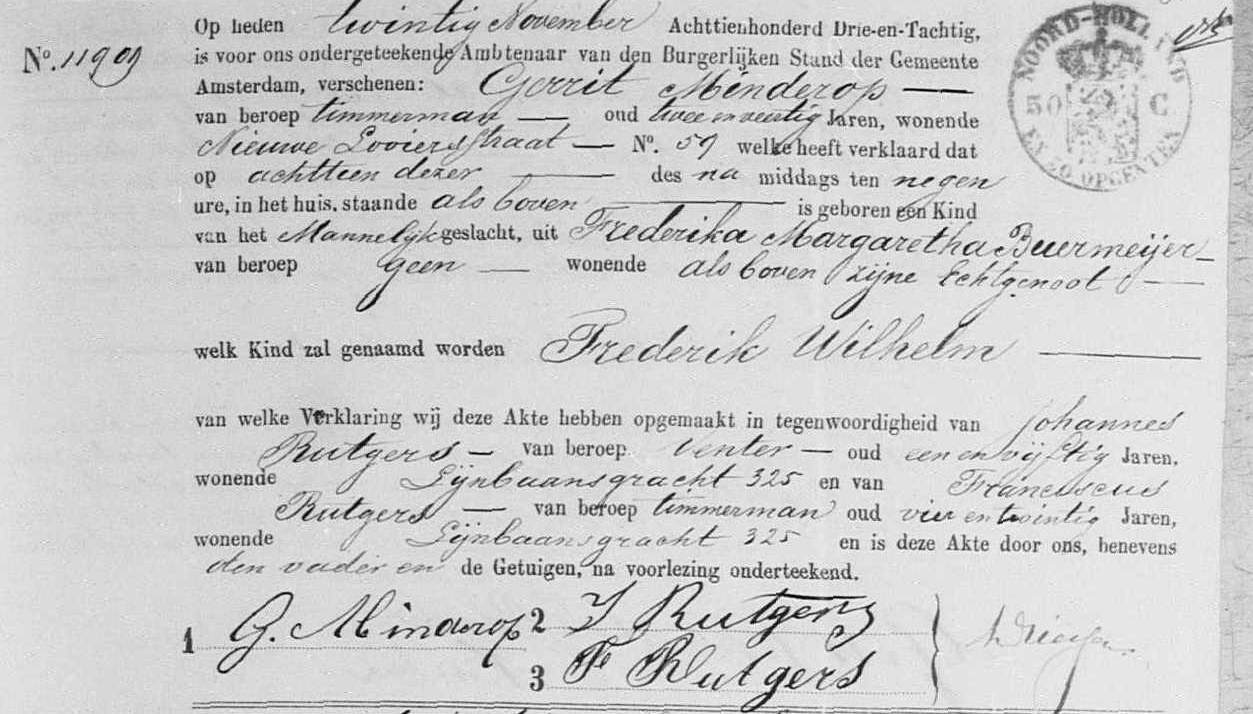 Op heden twintig November Achttienhonderd Drie-en-Tachtig,
No. 11909 is voor ons ondergeteekende Ambtenaar van den Burgerlijken Stand der Gemeente
Amsterdam, verschenen: Gerrit Minderop
van beroep timmerman oud twee en veertig Jaren, wonende
Nieuwe Looiersstraat No. 59 welke heeft verklaard dat
op achttien dezer des na middags ten negen
ure, in het huis. staande als boven is geboren een Kind
van het Mannelijk geslacht, uit Frederika Margaretha Buermeijer
van beroep geen wonende als boven zijne Echtgenoot
welk Kind zal genaamd worden Frederik Wilhelm
van welke Verklaring wij deze Akte hebben opgemaakt in tegenwoordigheid van Johannes
Rutgers van beroep Venter oud een en vijftig Jaren.
wonende Lijnbaansgracht 325 en van Franciscus
Rutgers van beroep timmerman oud vier en twintig Jaren,
wonende Lijnbaansgracht 325 en is deze Akte door ons, benevens
den vader en de Getuigen, na voorlezing onderteekend.
1 G. Minderop 2 J Rutgers
3 F Rutgers
NOORD-HOLLAND
50 C
EN 50 OPCENTEN